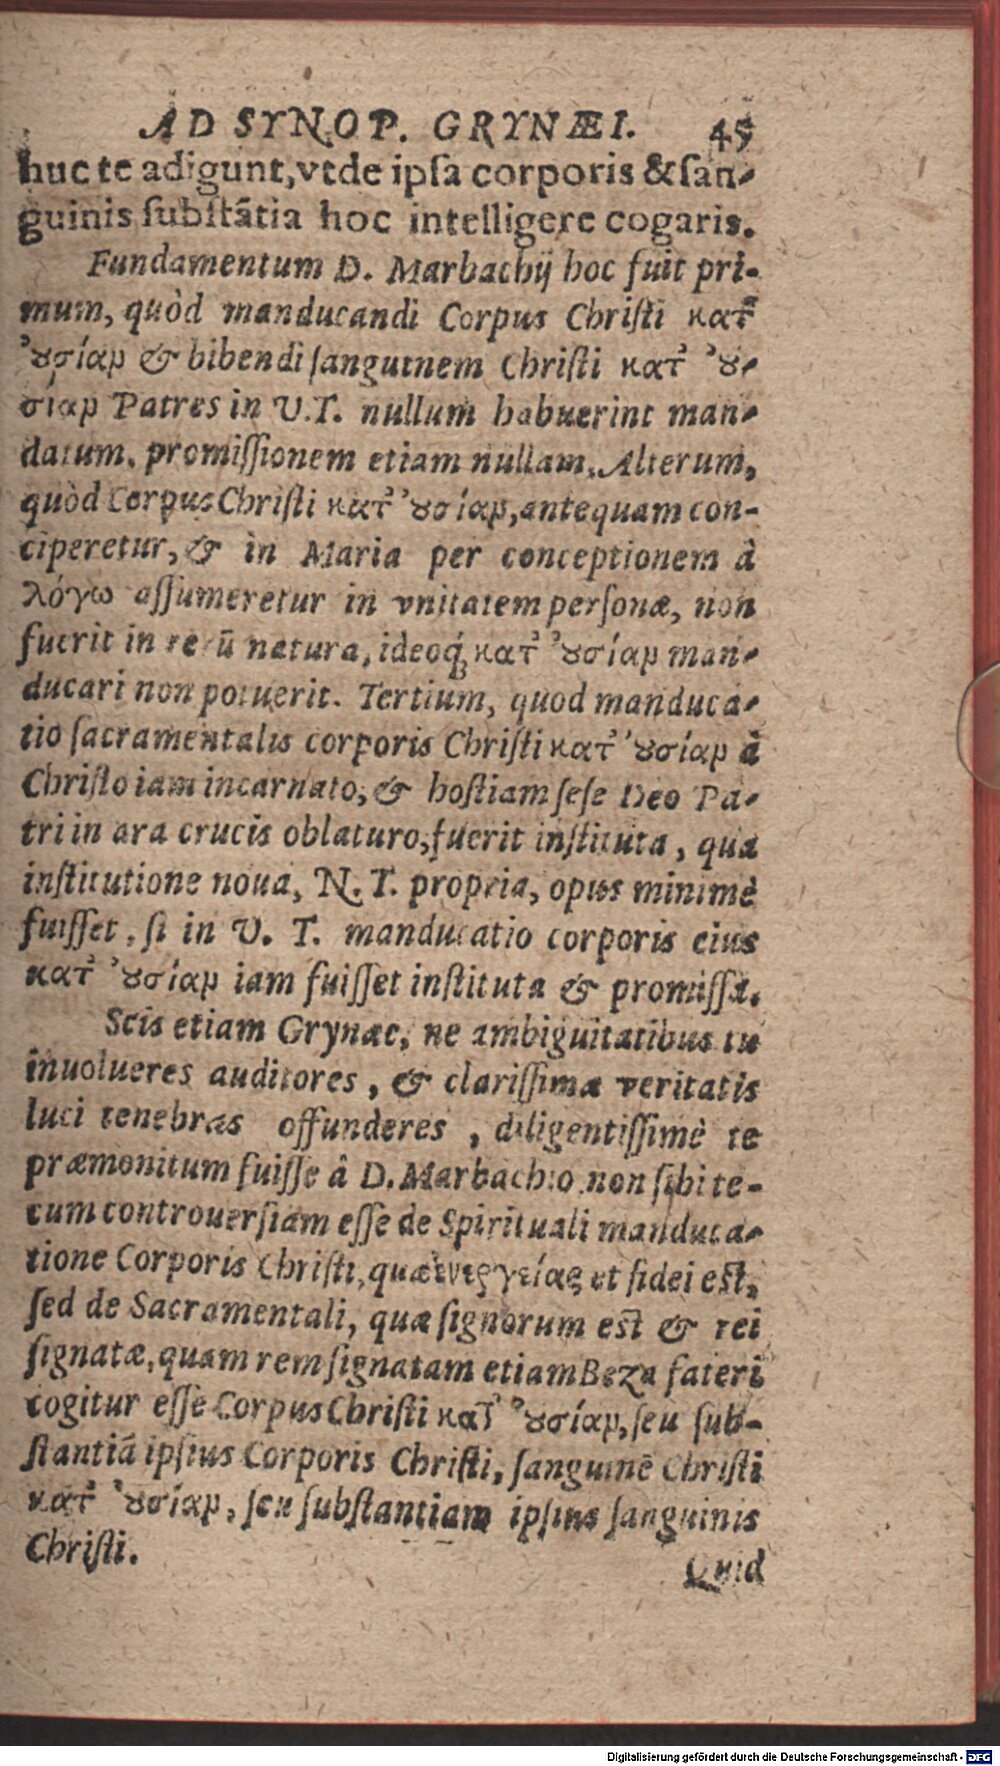 AD SYNOP. GRYNÆI. 45
huc te adigunt, vt de ipſa corporis & ſan-
guinis ſubſtãtia hoc intelligere cogaris.
Fundamentum D. Marbachij hoc fuit pri-
mum, quòd manducandi Corpus Chriſti κατ'
ȣσίαν & bibendi ſanguinem Chriſti κατ' ȣ-
σίαν Patres in V.T. nullum habuerint man-
datum, promiſſionem etiam nullam. Alterum,
quòd Corpus Chriſti κατ' ȣσίαν, antequam con-
ciperetur, & in Maria per conceptionem à
λόγω aſſumeretur in vnitatem perſonæ, non
fuerit in rerũ natura, ideoq́; κατ' ȣσίαν man-
ducari non potuerit. Tertium, quod manduca-
tio ſacramentalis corporis Chriſti κατ' ȣσίαν à
Chriſto iam incarnato, & hoſtiam ſeſe Deo Pa-
tri in ara crucis oblaturo, fuerit inſtituta, qua
inſtitutione noua, N. T. propria, opus minimè
fuiſſet, ſi in V. T. manducatio corporis eius
κατ' ȣσίαν iam fuiſſet inſtituta & promiſſa.
Scis etiam Grynæe, ne ambiguitatibus tu
inuolueres auditores, & clariſſimæ veritatis
luci tenebras offunderes, diligentiſſimè te
præmonitum fuiſſe â D. Marbachio, non ſibi te-
cum controuerſiam eſſe de Spirituali manduca-
tione Corporis Chriſti, quæ ἐνεργείας et fidei eſt,
ſed de Sacramentali, quæ ſignorum eſt & rei
ſignatæ, quam rem ſignatam etiam Beza fateri
cogitur eſſe Corpus Chriſti κατ' ȣσίαν, ſeu ſub-
ſtantiã ipſius Corporis Chriſti, ſanguinē Chriſti
κατ' ȣσίαν, ſeu ſubſtantiam ipſius ſanguinis
Chriſti.
Quid
Digitalisierung gefördert durch die Deutsche Forschungsgemeinschaft - DFG